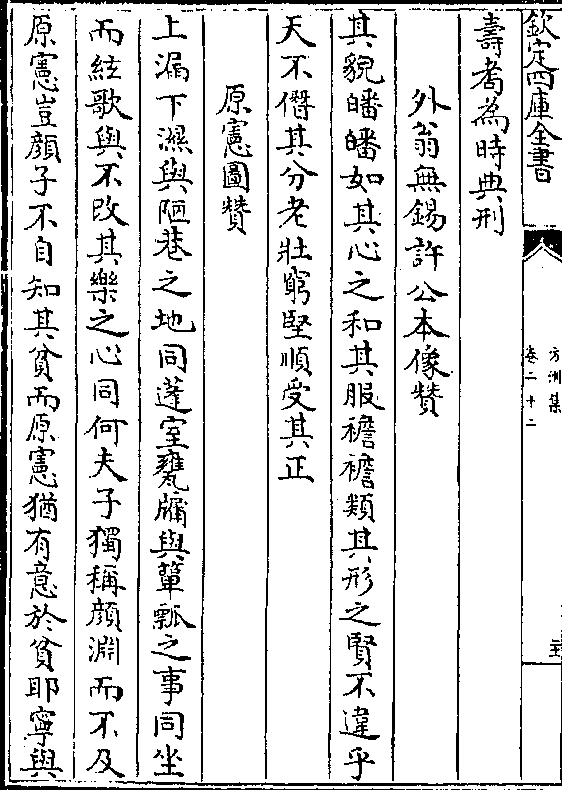 欽定四庫全書
方洲集
卷二十二
壽耈為時典刑
外翁無錫許公本像贊
其貌皤皤如其心之和其服襜襜類其形之賢不違乎
天不僭其分老壯窮堅順受其正
原憲圖贊
上漏下濕與陋巷之地同蓬室甕牖與簞瓢之事同坐
而絃歌與不改其樂之心同何夫子獨稱顔淵而不及
原憲豈顔子不自知其貧而原憲猶有意於貧耶寧與